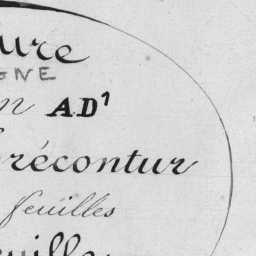 ure
GNE
n A.D¹
récontur
feuilles
euille